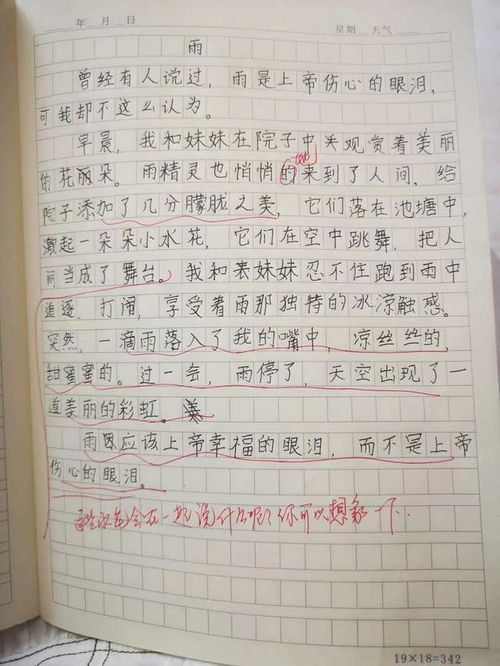 年 月 日 星期 天气
雨
曾经有人说过，雨是上帝伤心的眼泪，
可我却不这么认为。
早晨，我和妹妹在院子中观赏着美丽
的花朵。雨精灵也悄悄的来到了人间，给
地
院子添加了几分朦胧之美，它们落在池塘中，
激起一朵朵小水花，它们在空中跳舞，把人
间当成了舞台。我和表妹妹忍不住跑到雨中
追逐、打闹，享受着雨那独特的冰凉触感。
突然，一滴雨落入了我的嘴中，凉丝丝的，
甜蜜蜜的。过一会，雨停了，天空出现了一
道美丽的彩虹。
雨应该上帝幸福的眼泪，而不是上帝
伤心的眼泪。
会在一起说什么呢？你可以想象一下.
19×18=342